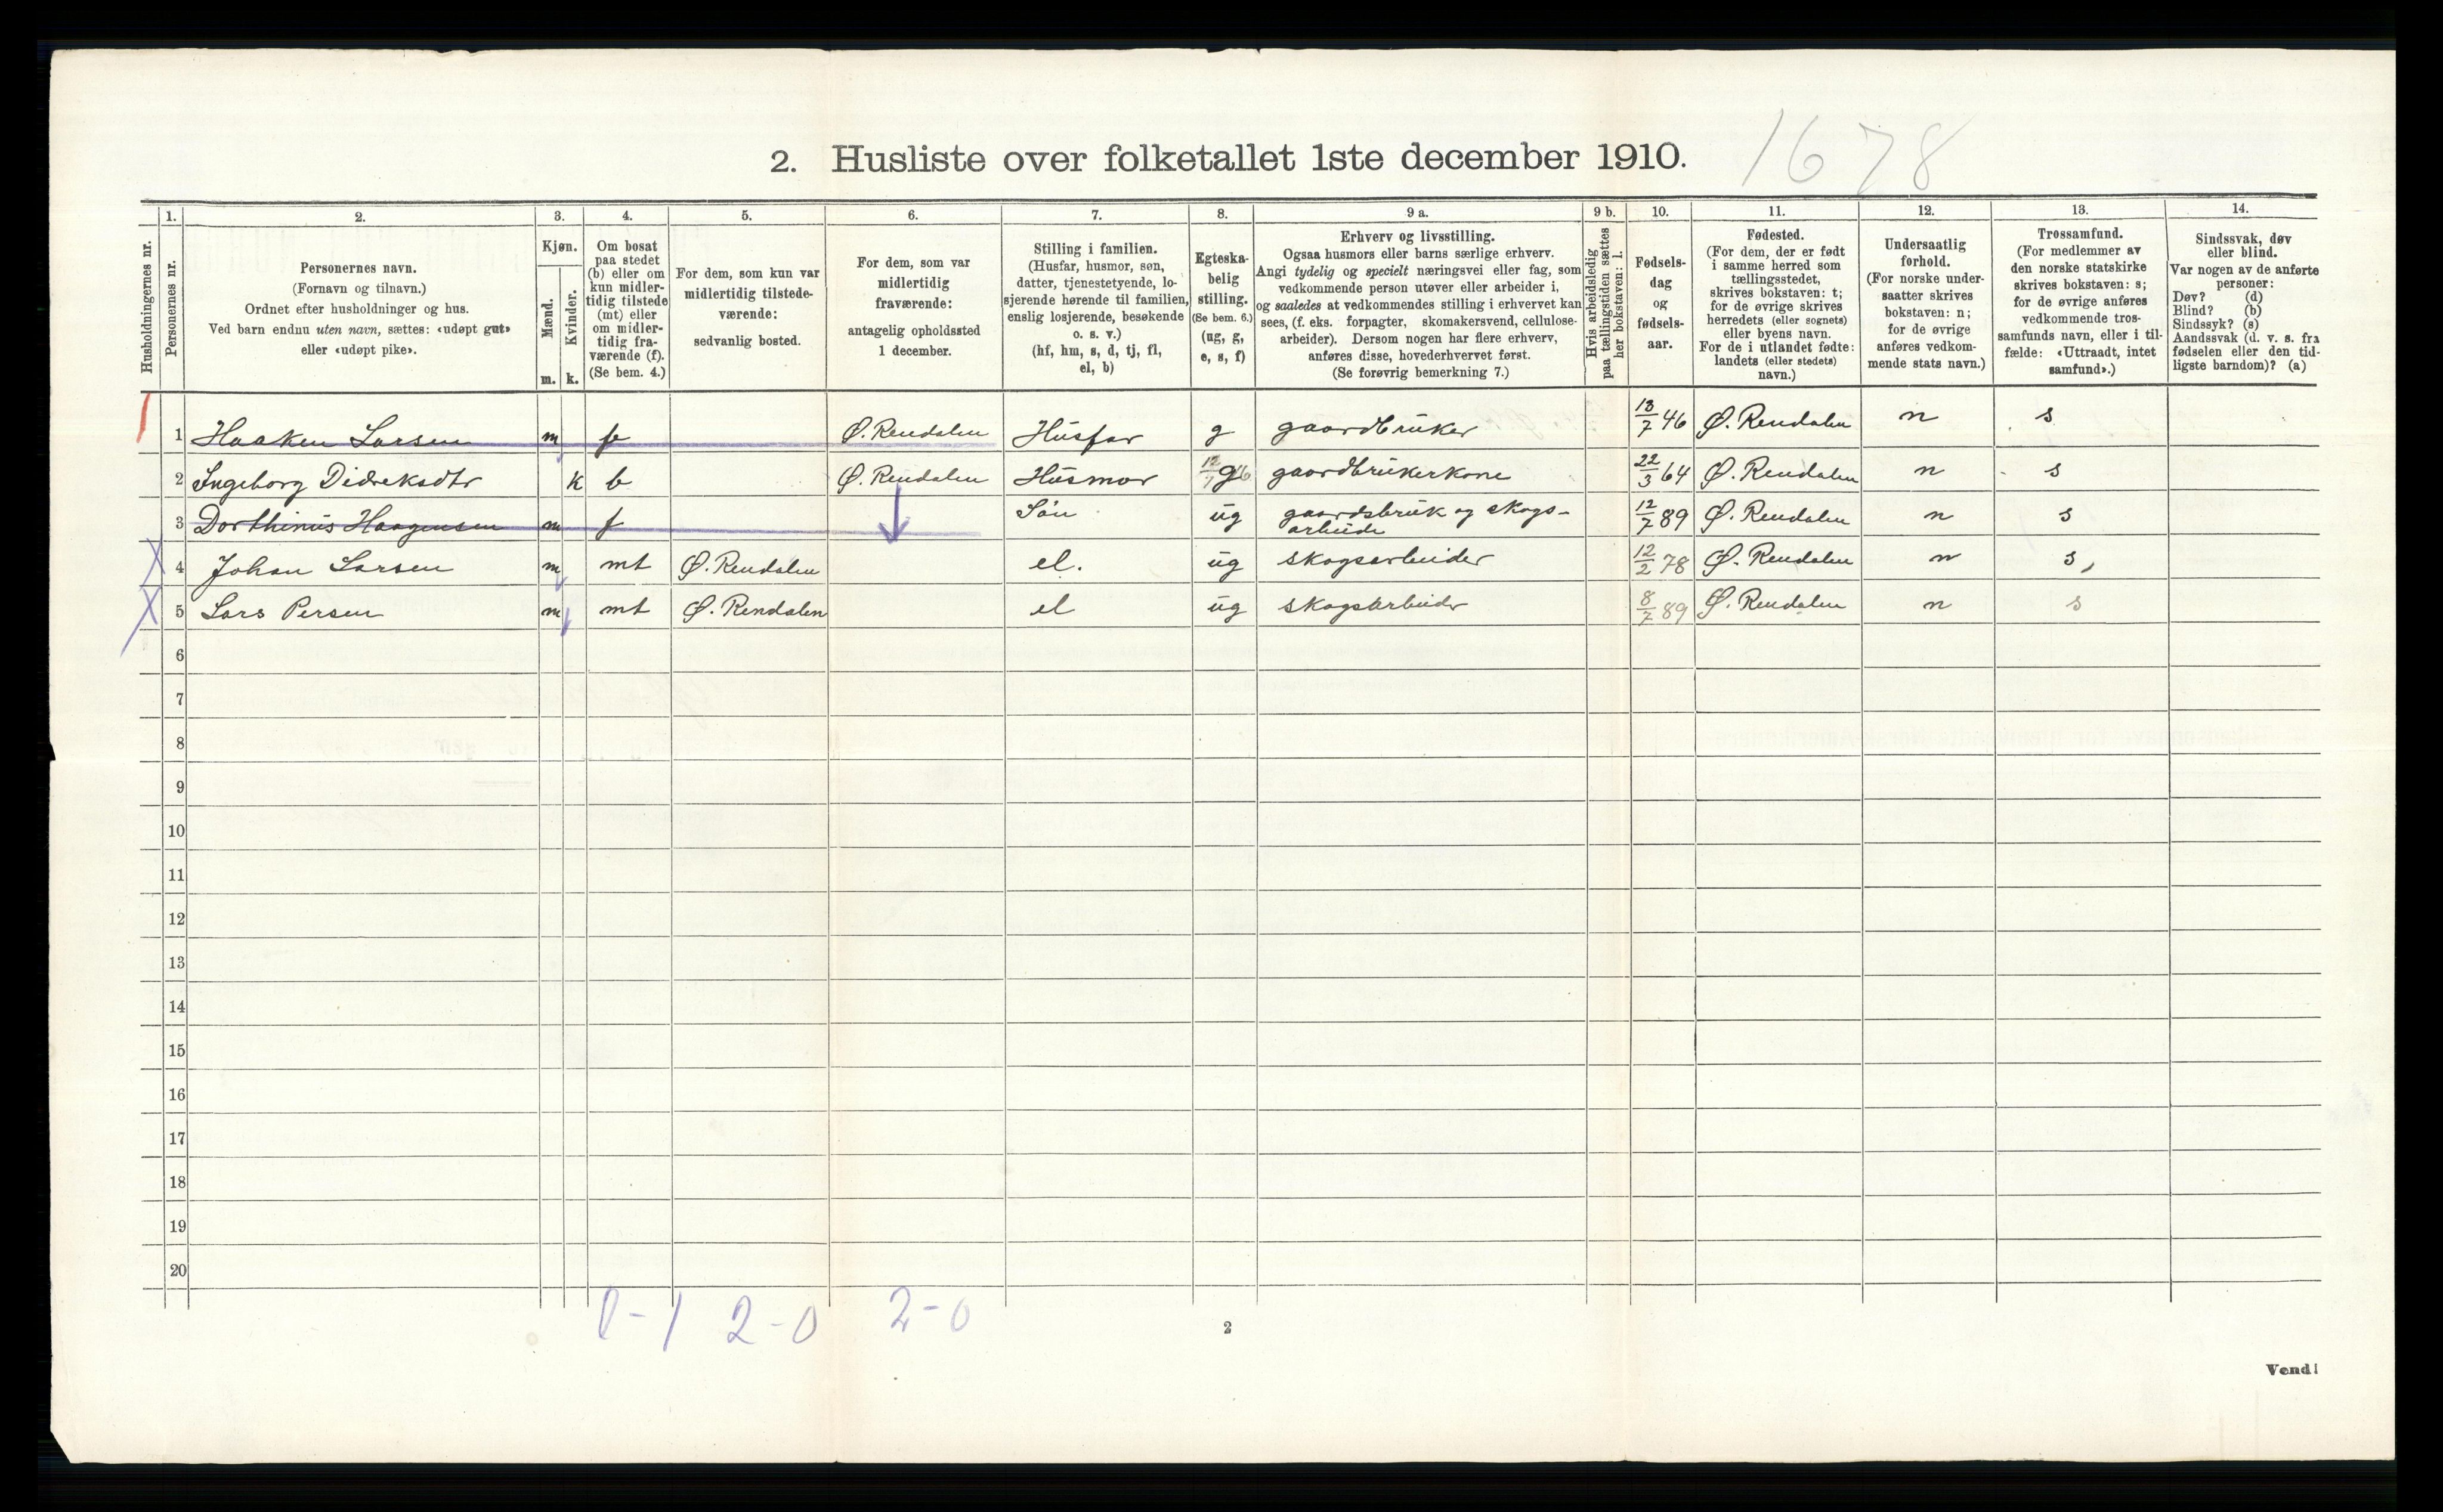 1678
2. Husliste over folketallet 1ste december 1910.
1. 2. 3. 4. 5. 6. 7. 8. 9 a. 9 b. 10. 11. 12. 13. 14.
Husholdningernes nr.
Personernes nr.
Personernes navn.
(Fornavn og tilnavn.)
Ordnet efter husholdninger og hus.
Ved barn endnu uten navn, sættes: «udøpt gut»
eller «udøpt pike».
Kjøn.
Mænd.
Kvinder.
m. k.
Om bosat
paa stedet
(b) eller om
kun midler-
tidig tilstede
(mt) eller
om midler-
tidig fra-
værende (f).
(Se bem. 4.)
For dem, som kun var
midlertidig tilstede-
værende:
sedvanlig bosted.
For dem, som var
midlertidig
fraværende:
antagelig opholdssted
1 december.
Stilling i familien.
(Husfar, husmor, søn,
datter, tjenestetyende, lo-
sjerende hørende til familien,
enslig losjerende, besøkende
o. s. v.)
(hf, hm, s, d, tj, fl,
el, b)
Egteska-
belig
stilling.
(Se bem. 6.)
(ug, g,
e, s, f)
Erhverv og livsstilling.
Ogsaa husmors eller barns særlige erhverv.
Angi tydelig og specielt næringsvei eller fag, som
vedkommende person utøver eller arbeider i,
og saaledes at vedkommendes stilling i erhvervet kan
sees, (f. eks. forpagter, skomakersvend, cellulose-
arbeider). Dersom nogen har flere erhverv,
anføres disse, hovederhvervet først.
(Se forøvrig bemerkning 7.)
Hvis arbeidsledig
paa tællingstiden sættes
her bokstaven: l.
Fødsels-
dag
og
fødsels-
aar.
Fødested.
(For dem, der er født
i samme herred som
tællingsstedet,
skrives bokstaven: t;
for de øvrige skrives
herredets (eller sognets)
eller byens navn.
For de i utlandet fødte:
landets (eller stedets)
navn.)
Undersaatlig
forhold.
(For norske under-
saatter skrives
bokstaven: n;
for de øvrige
anføres vedkom-
mende stats navn.)
Trossamfund.
(For medlemmer av
den norske statskirke
skrives bokstaven: s;
for de øvrige anføres
vedkommende tros-
samfunds navn, eller i til-
fælde: «Uttraadt, intet
samfund».)
Sindssvak, døv
eller blind.
Var nogen av de anførte
personer:
Døv? (d)
Blind? (b)
Sindssyk? (s)
Aandssvak (d. v. s. fra
fødselen eller den tid-
ligste barndom)? (a)
1 Haaken Larsen m Ø. Rendalen Husfar g gaardbruker 13/7 46 Ø. Rendalen n s
2 Ingeborg Didreksdtr k b Ø. Rendalen Husmor g gaardbrukerkone 22/3 64 Ø. Rendalen n s
3 Dorthinus Haagensen m f Sön ug gaardsbruk og skogs-
arbeide 12/7 89 Ø. Rendalen n s
4 Johan Larsen m mt Ø. Rendalen el. ug skogsarbeider 12/2 78 Ø. Rendalen n s,
5 Lars Persen m mt Ø. Rendalen el ug skogsarbeider 8/7 89 Ø. Rendalen n s
6
7
8
9
10
11
12
13
14
15
16
17
18
19
20
0-1 2-0 2-0
2
Vend!